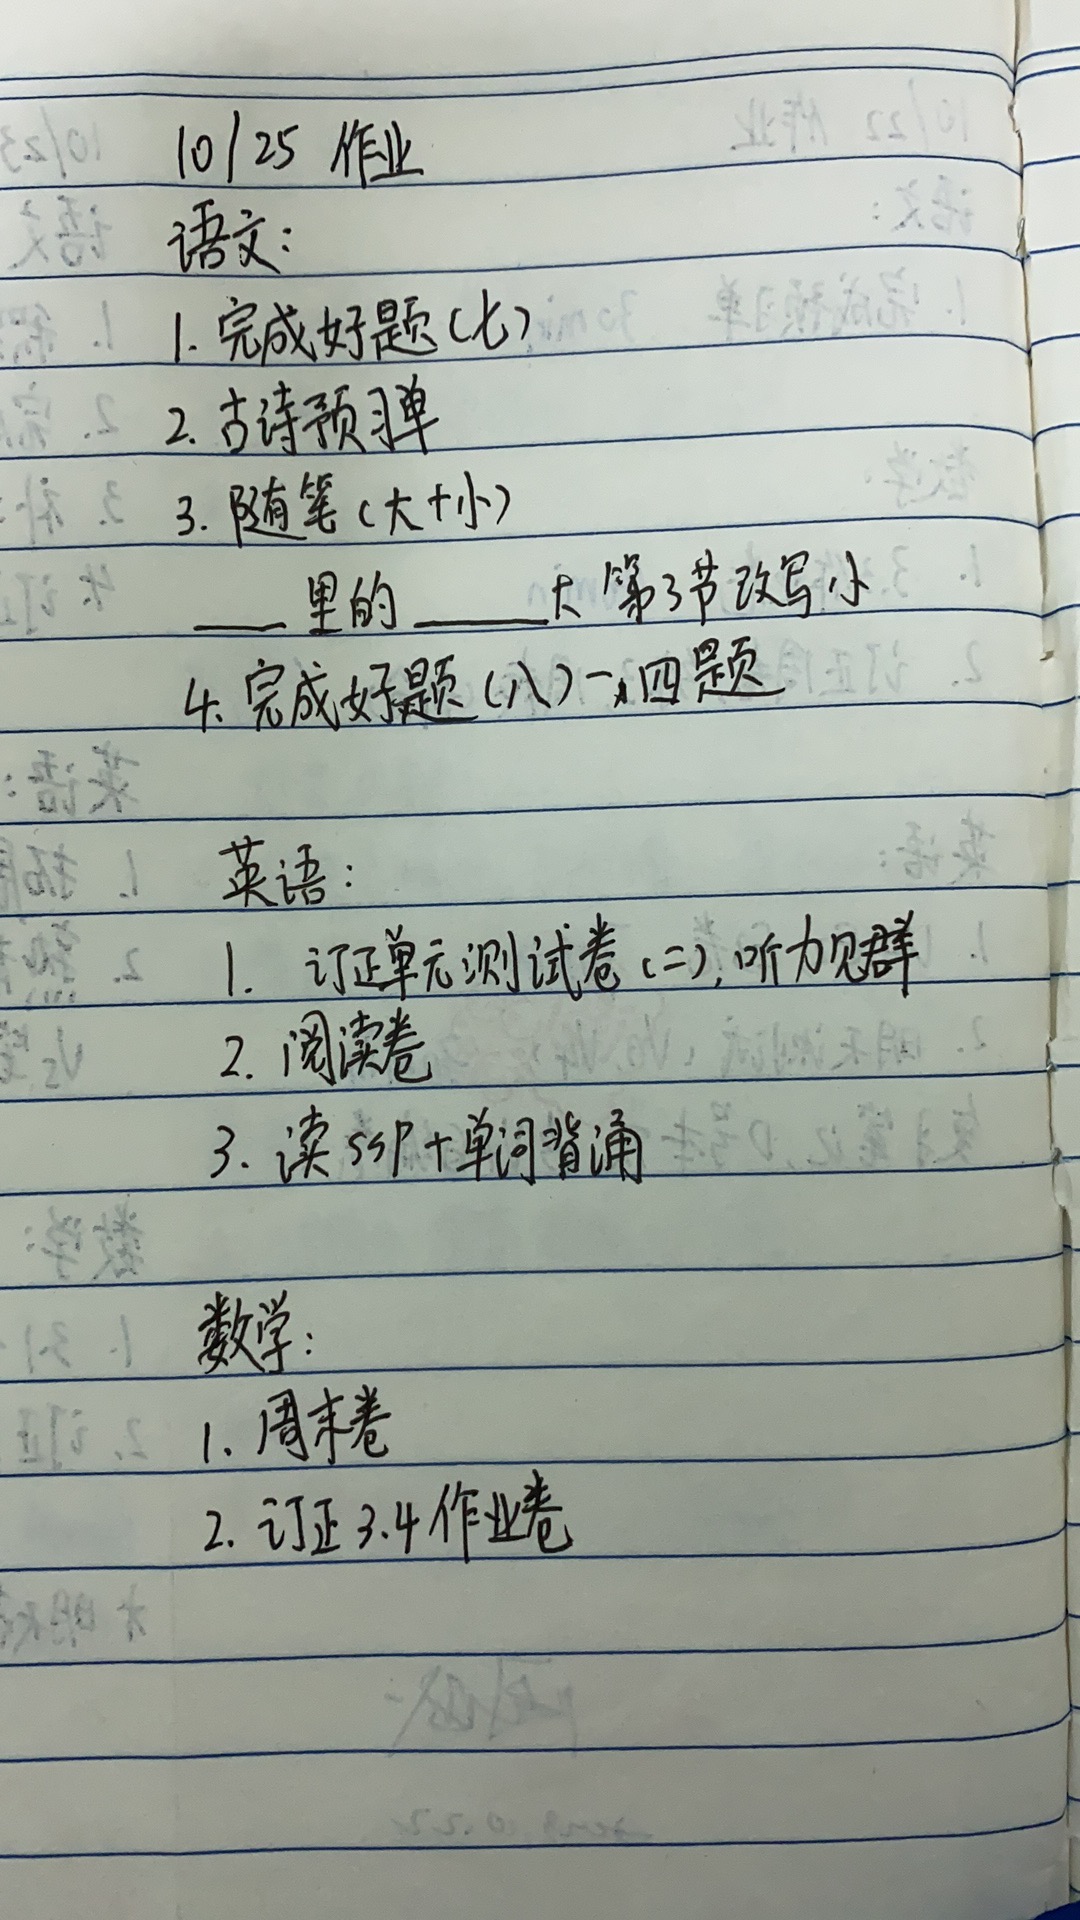 10/25 作业
语文:
1. 完成好题(七)
2. 古诗预习单
3. 随笔(大+小)
___里的_____大 第3节改写小
4. 完成好题(八)一、四题
英语:
1. 订正单元测试卷(二),听力见群
2. 阅读卷
3. 读SSP+单词背诵
数学:
1. 周末卷
2. 订正3.4作业卷